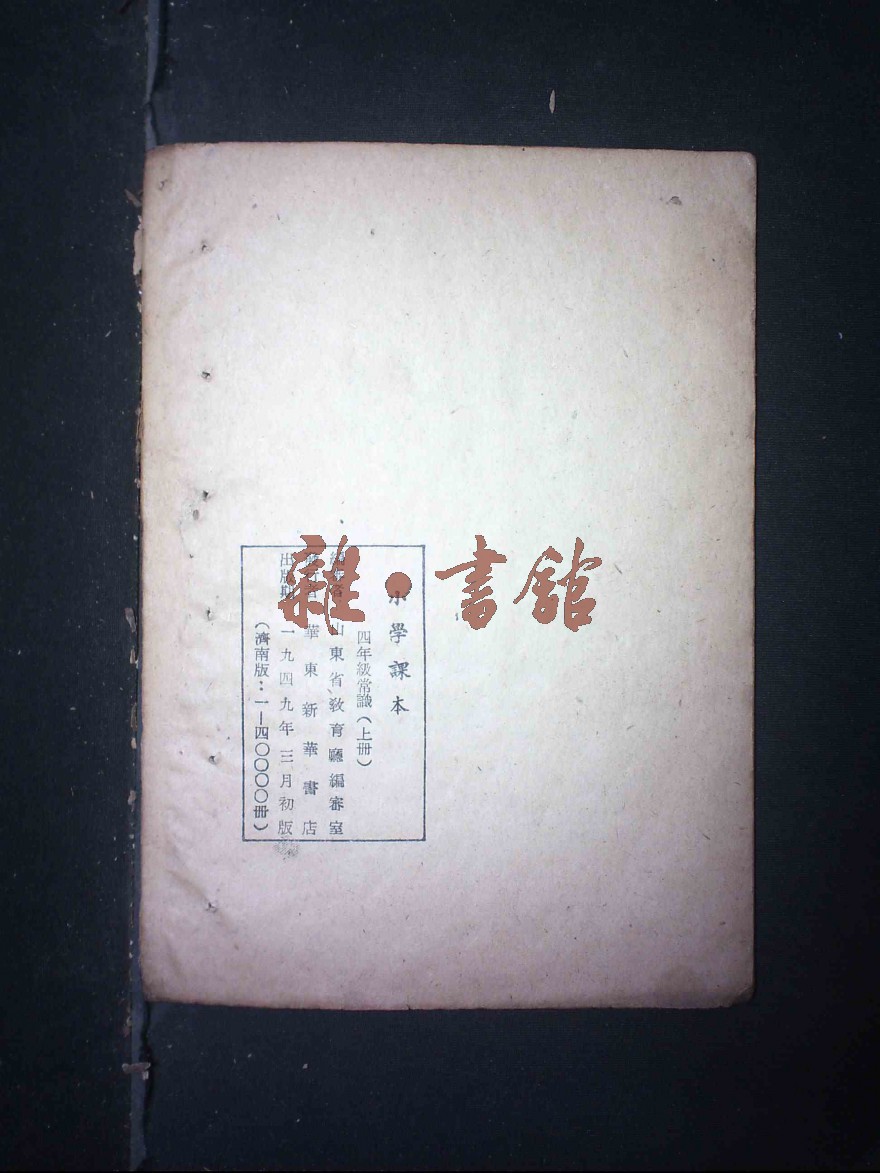 小學課本
四年級常識（上册）
編審者 山東省敎育廳編審室
發行者 華東新華書店
出版期 一九四九年三月初版
（濟南版：一—四〇〇〇〇册）
雜·書館